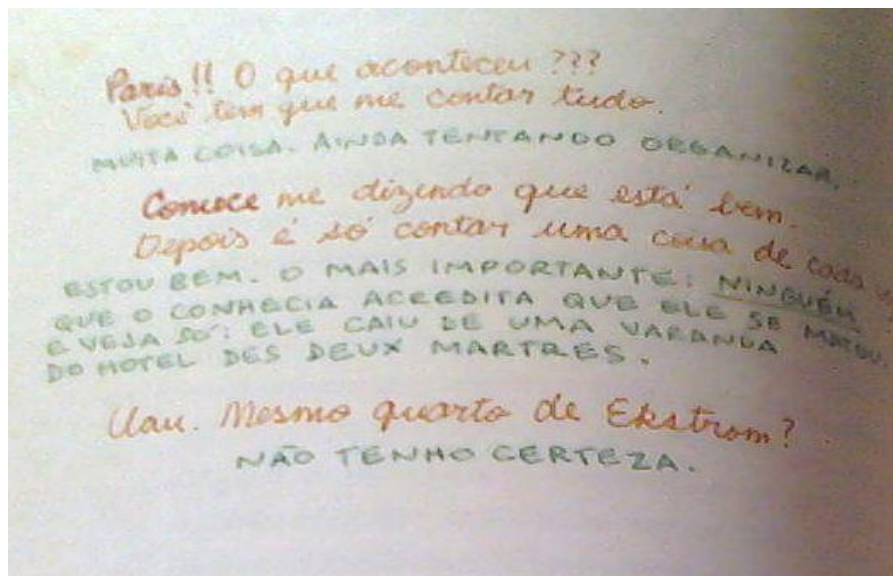 Paris!! O que aconteceu???
Você tem que me contar tudo.
MUITA COISA. AINDA TENTANDO ORGANIZAR.
Comece me dizendo que está bem.
Depois é só contar uma coisa de cada
ESTOU BEM. O MAIS IMPORTANTE: NINGUÉM
QUE O CONHECIA ACREDITA QUE ELE SE MATOU.
E VEJA SÓ: ELE CAIU DE UMA VARANDA
DO HOTEL DES DEUX MARTRES.
Uau. Mesmo quarto de Ekstrom?
NÃO TENHO CERTEZA.